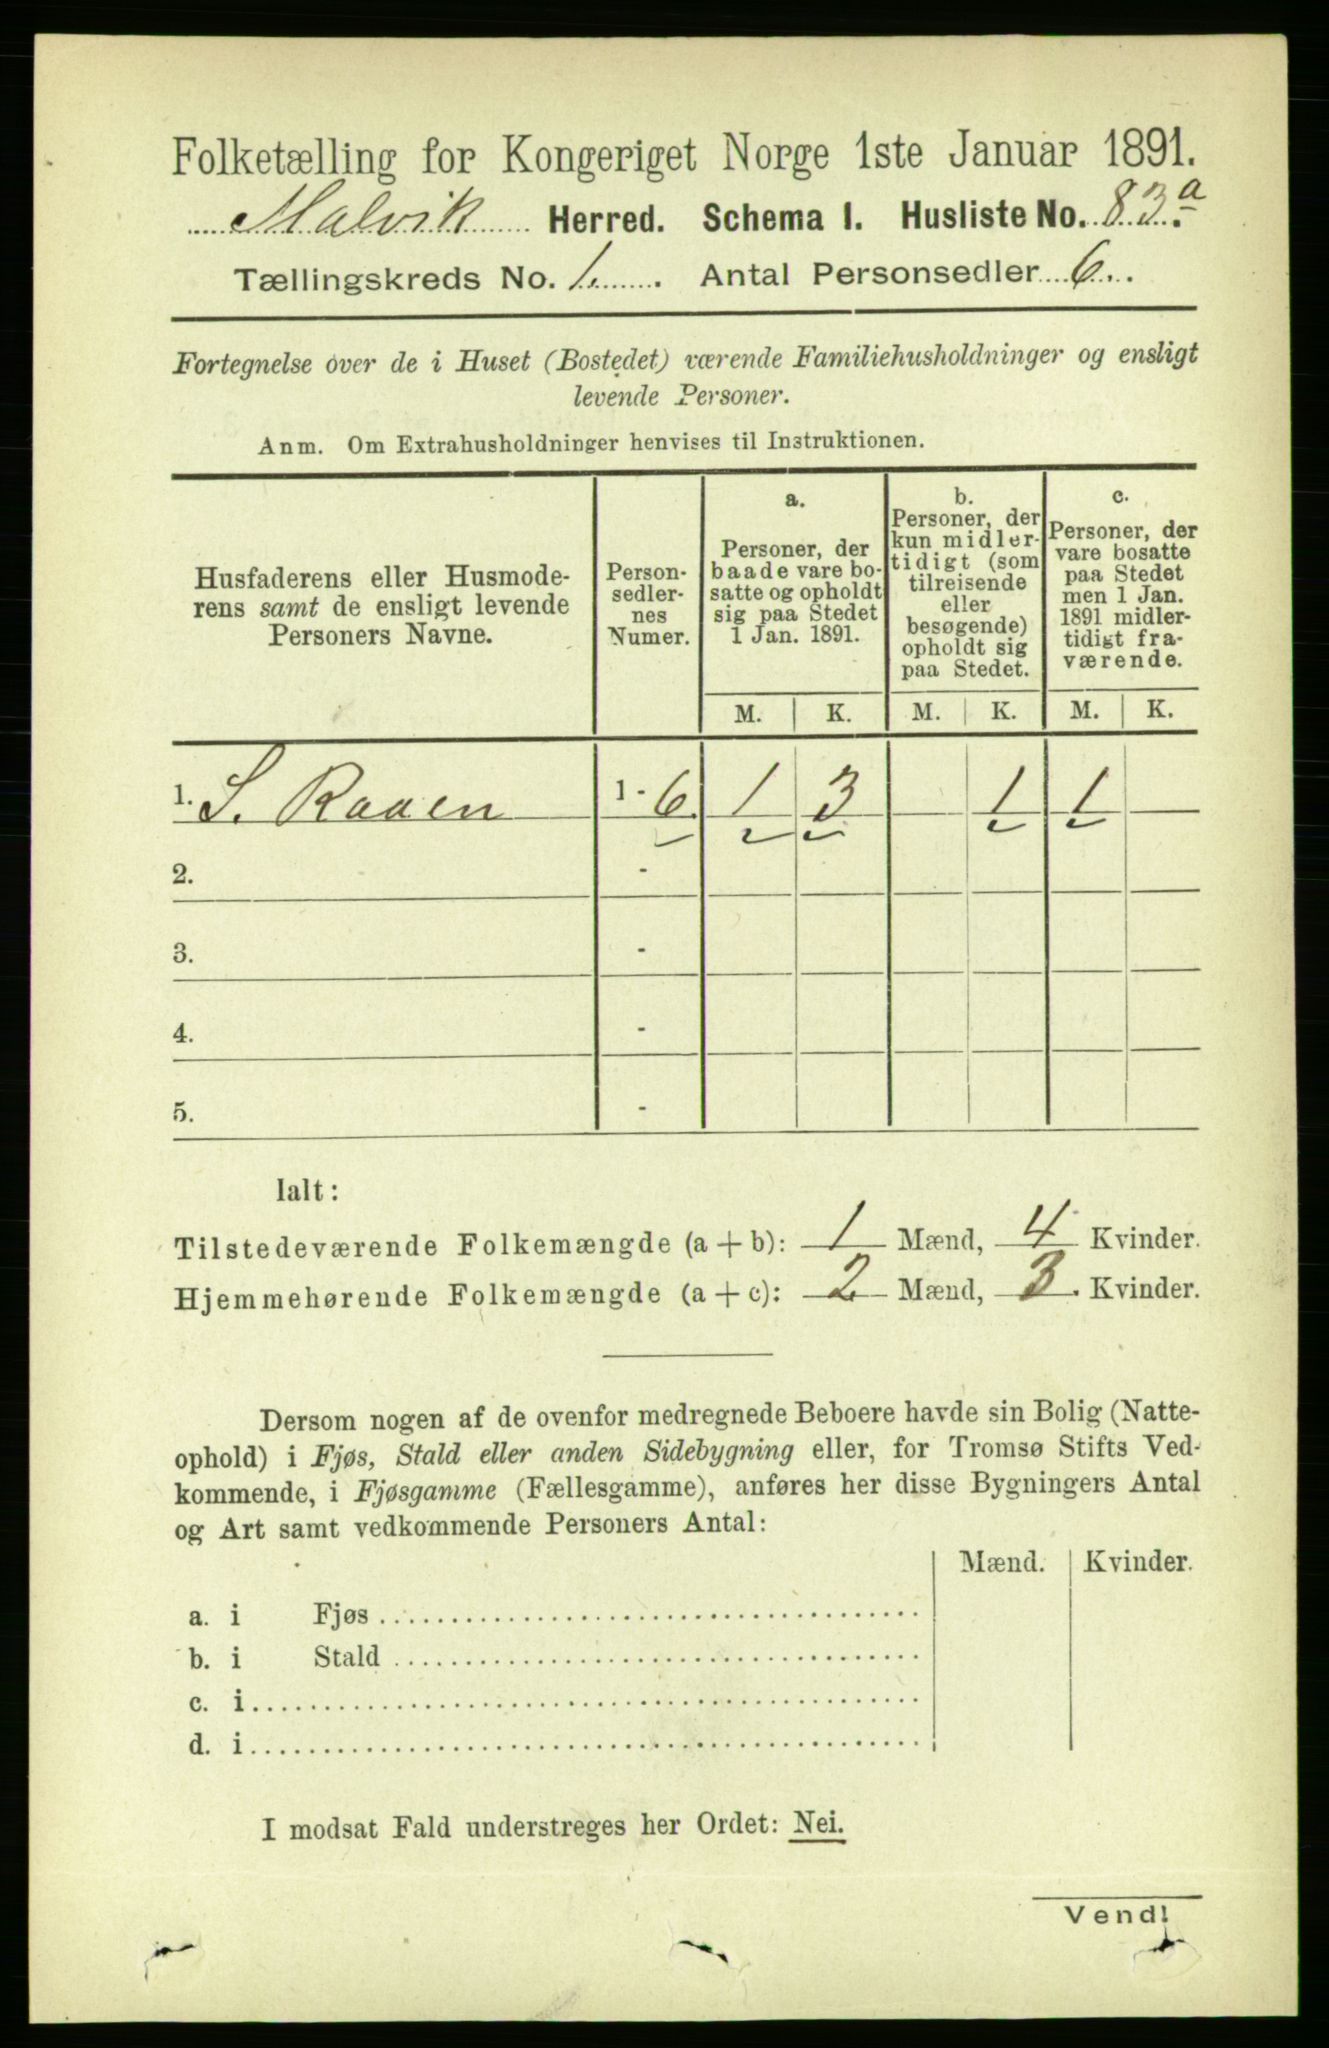 Folketælling for Kongeriget Norge 1ste Januar 1891.
Malvik Herred. Schema I. Husliste No. 83a.
Tællingskreds No. 1. Antal Personsedler 6.
Fortegnelse over de i Huset (Bostedet) værende Familiehusholdninger og ensligt
levende Personer.
Anm. Om Extrahusholdninger henvises til Instruktionen.
Husfaderens eller Husmode-
rens samt de ensligt levende
Personers Navne.
Person-
sedler-
nes
Numer.
a.
Personer, der
baade vare bo-
satte og opholdt
sig paa Stedet
1 Jan. 1891.
b.
Personer, der
kun midler-
tidigt (som
tilreisende
eller
besøgende)
opholdt sig
paa Stedet.
c.
Personer, der
vare bosatte
paa Stedet
men 1 Jan.
1891 midler-
tidigt fra-
værende.
M. K. M. K. M. K.
1. S. Raaen 1 - 6. 1 3 1 1
2. -
3. -
4. -
5. -
Ialt:
Tilstedeværende Folkemængde (a + b): 1 Mænd, 4 Kvinder.
Hjemmehørende Folkemængde (a + c): 2 Mænd, 3 Kvinder.
Dersom nogen af de ovenfor medregnede Beboere havde sin Bolig (Natte-
ophold) i Fjøs, Stald eller anden Sidebygning eller, for Tromsø Stifts Ved-
kommende, i Fjøsgamme (Fællesgamme), anføres her disse Bygningers Antal
og Art samt vedkommende Personers Antal:
Mænd. Kvinder.
a. i Fjøs
b. i Stald
c. i
d. i
I modsat Fald understreges her Ordet: Nei.
Vend!